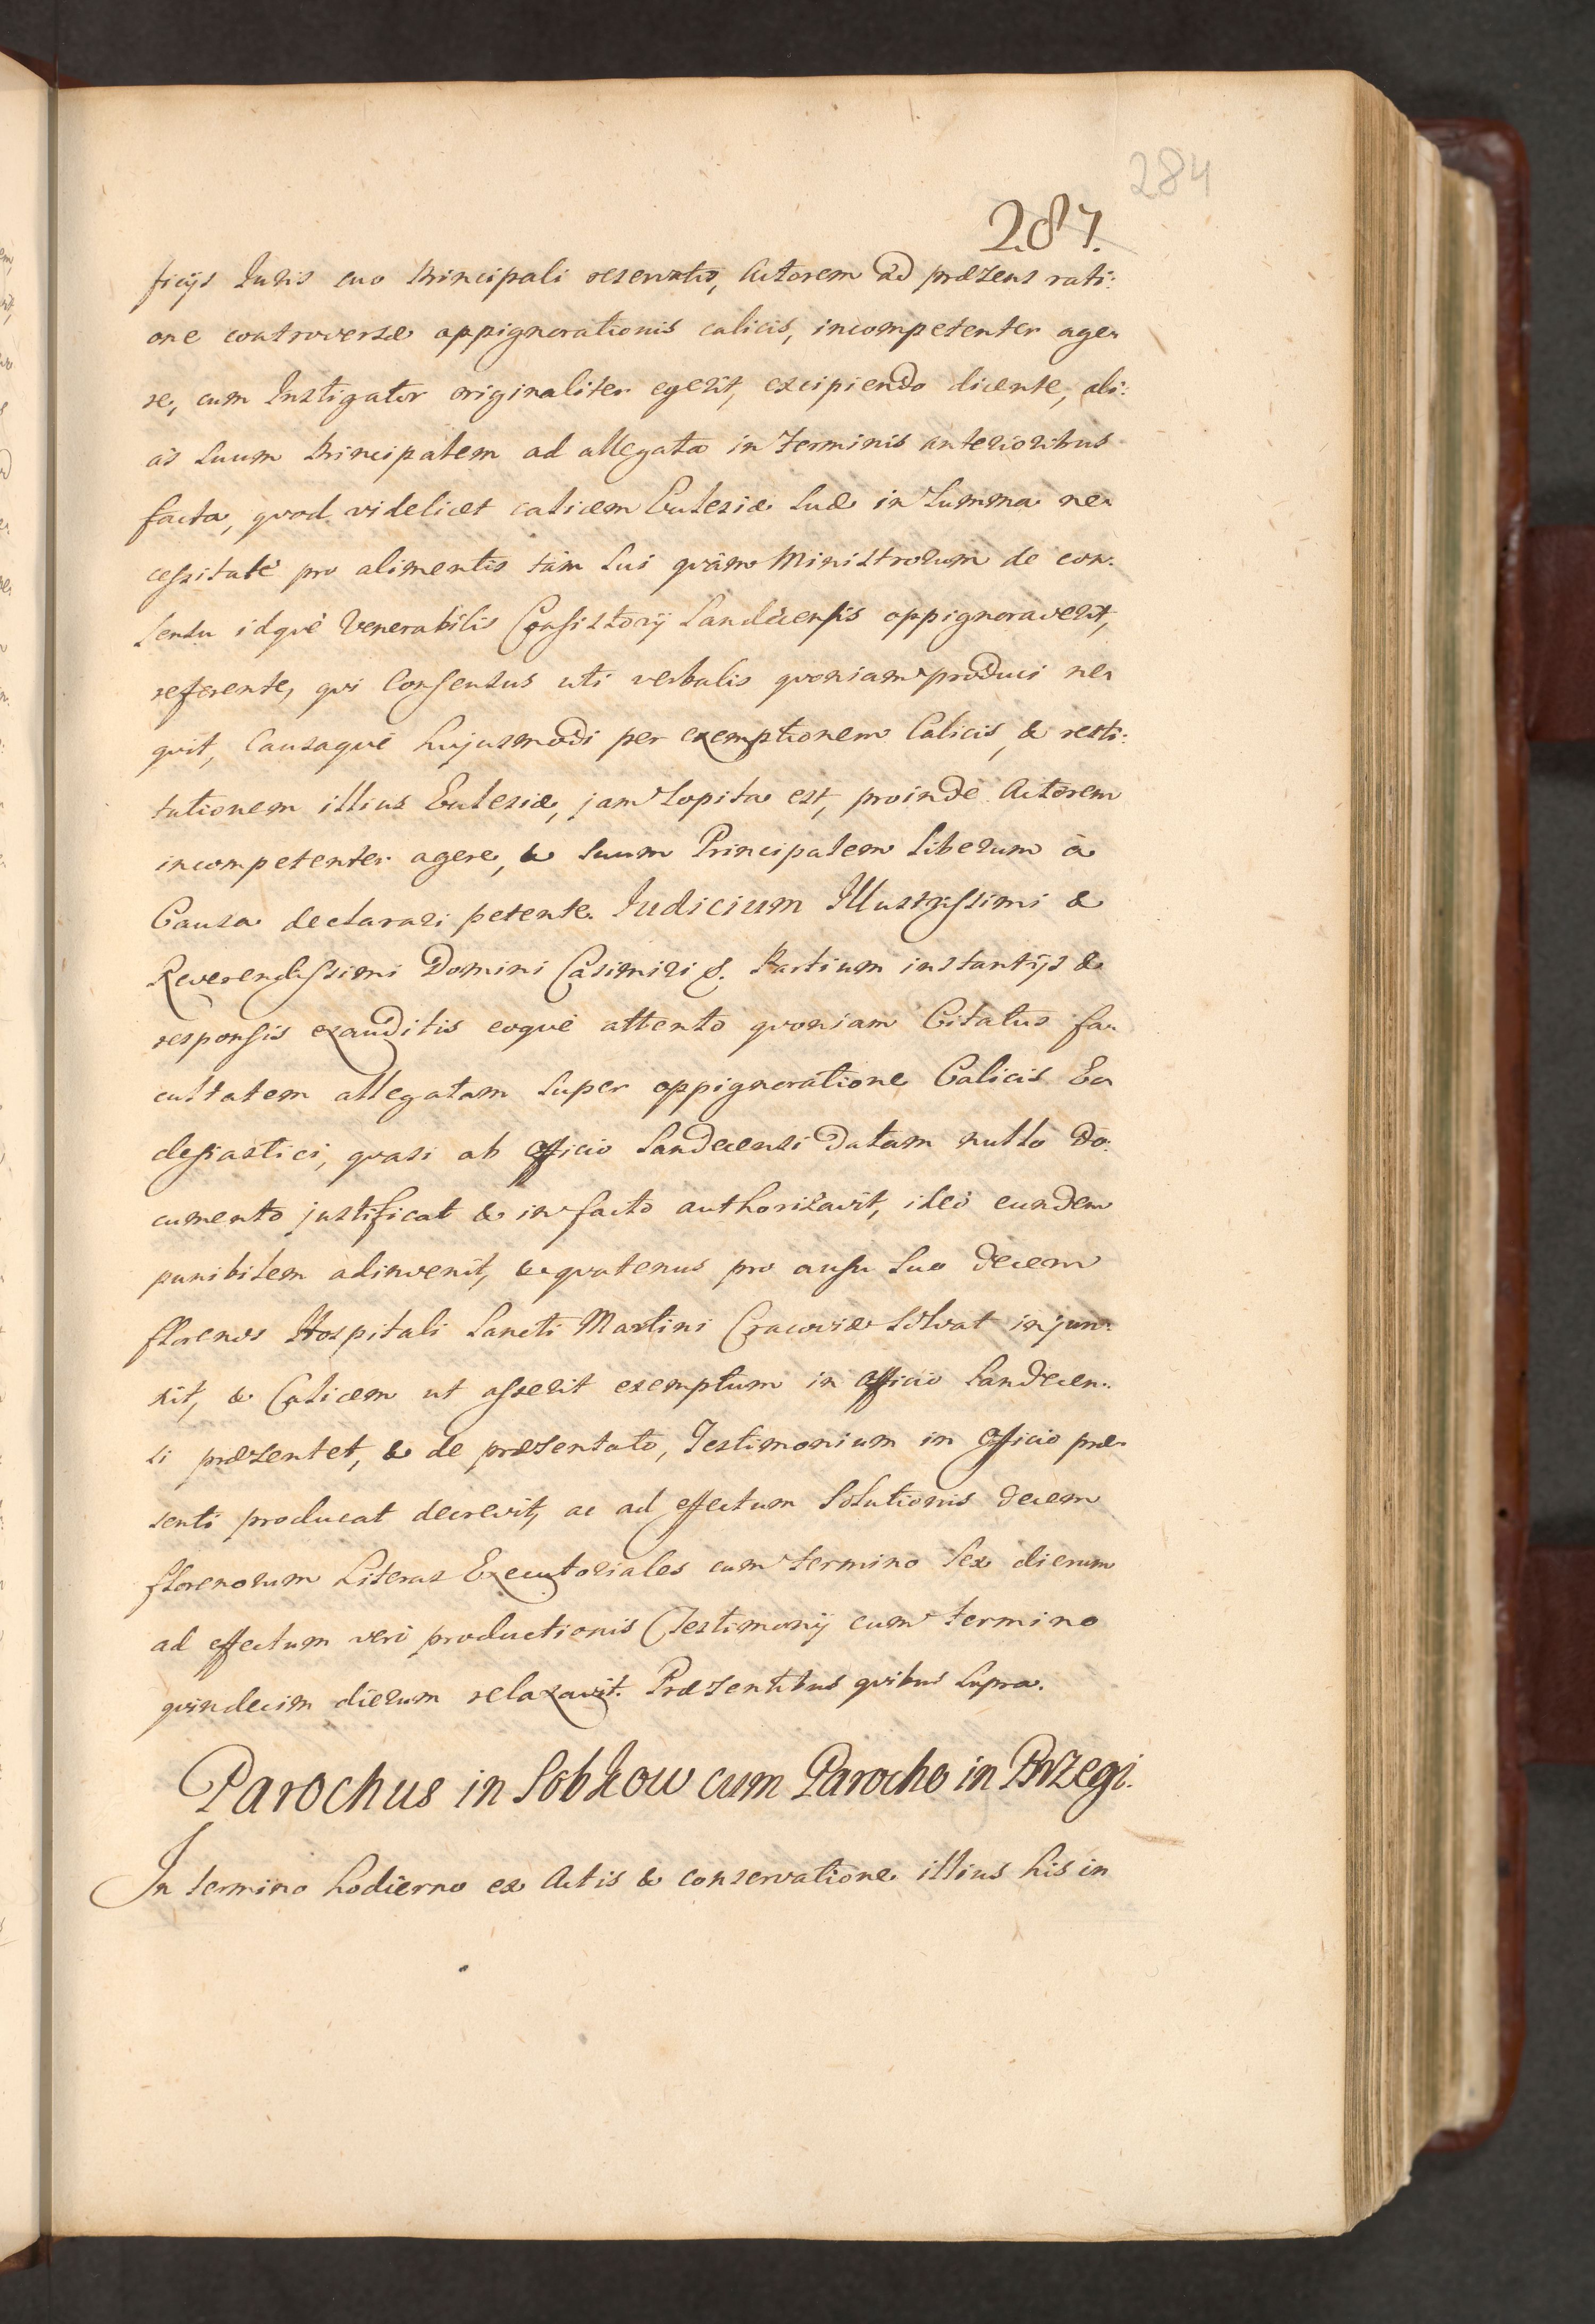 284
287.
ficijs Iuris suo Principali reservatis, Actorem ad præsens rati:
one controversæ oppignorationis calicis, incompetenter age-
re, cum Instigator originaliter egerit, excipiendo dicente, ali:
as suum Principalem ad allegata in Terminis anterioribus
facta, quod videlicet calicem Ecclesiæ suæ in summa ne-
cessitate pro alimentis tàm sui quàm Ministrorum de con-
sensu idquè Venerabilis Consistorij Sandecensis oppignoraverit,
referente, qui Consensus uti verbalis quoniam produci ne-
quit, Causaquè hujusmodi per exemptionem Calicis, & resti:
tutionem illius Ecclesiæ, jam sopita est, proindè Actorem
incompetenter agere, & suum Principalem liberum à
Causa declarari petente. Iudicium Illustrissimi &
Reverendissimi Domini Casimiri &. Partium instantijs &
responsis exauditis eoquè attento quoniam Citatus fa-
cultatem allegatam super oppignoratione Calicis Ec
clesiastici, quasi ab officio Sandecensi datam nullo do-
cumento justificat & in facto authorizavit, ideò eundem
punibilem adinvenit, & quatenus pro ausu suo decem
florenos Hospitali Sancti Martini Cracoviæ solvat injun-
xit, & Calicem ut asserit exemptum in officio Sandecen-
si præsentet, & de præsentato, Testimonium in officio præ-
senti producat decrevit, ac ad effectum Solutionis decem
florenorum Literas Executoriales cum termino sex dierum
ad effectum verò productionis Testimonij cum termino
quindecim dierum relaxavit. Præsentibus quibus supra.
Parochus in Sobkow cum Parocho in Brzegi.
In termino hodierno ex Actis & conservatione illius his in